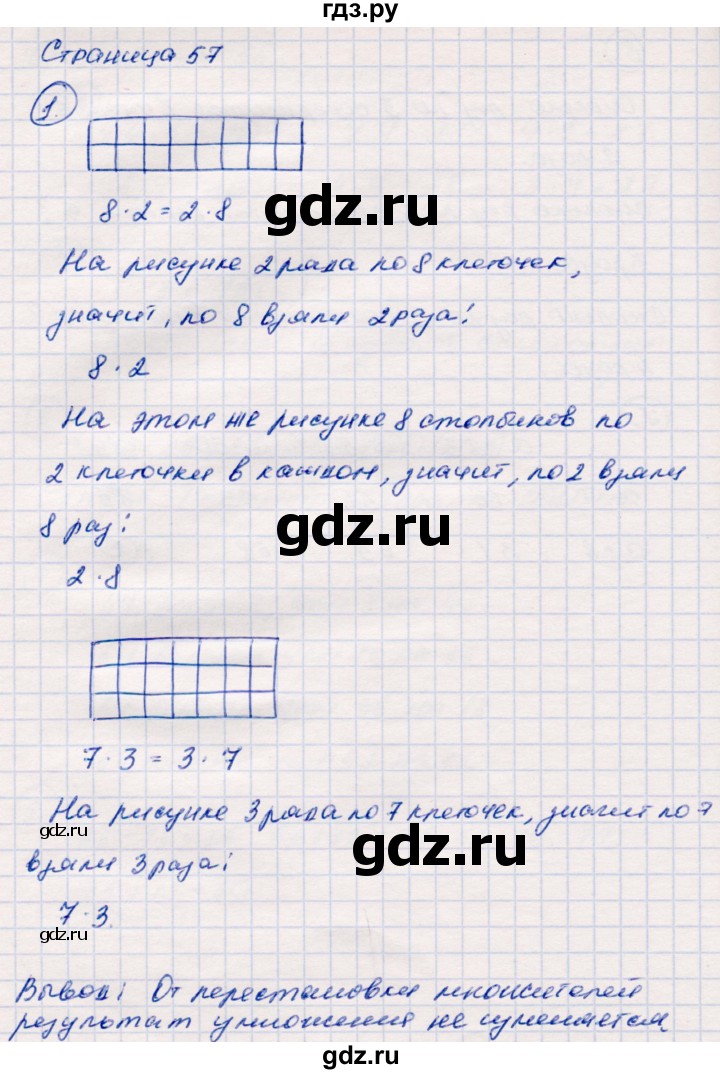 гдз.ру
Страница 57
1.
8·2=2·8
gdz.ru
На рисунке 2 ряда по 8 клеточек,
значит, по 8 взяли 2 раза:
8·2
На этом же рисунке 8 столбиков по
2 клеточки в каждом, значит, по 2 взяли
8 раз:
gdz.ru
2·8
7·3=3·7
На рисунке 3 ряда по 7 клеточек, значит по 7
gdz.ru
взяли 3 раза:
gdz.ru
7·3.
gdz.ru
Вывод: От перестановки множителей
результат умножения не изменяется.
gdz.ru